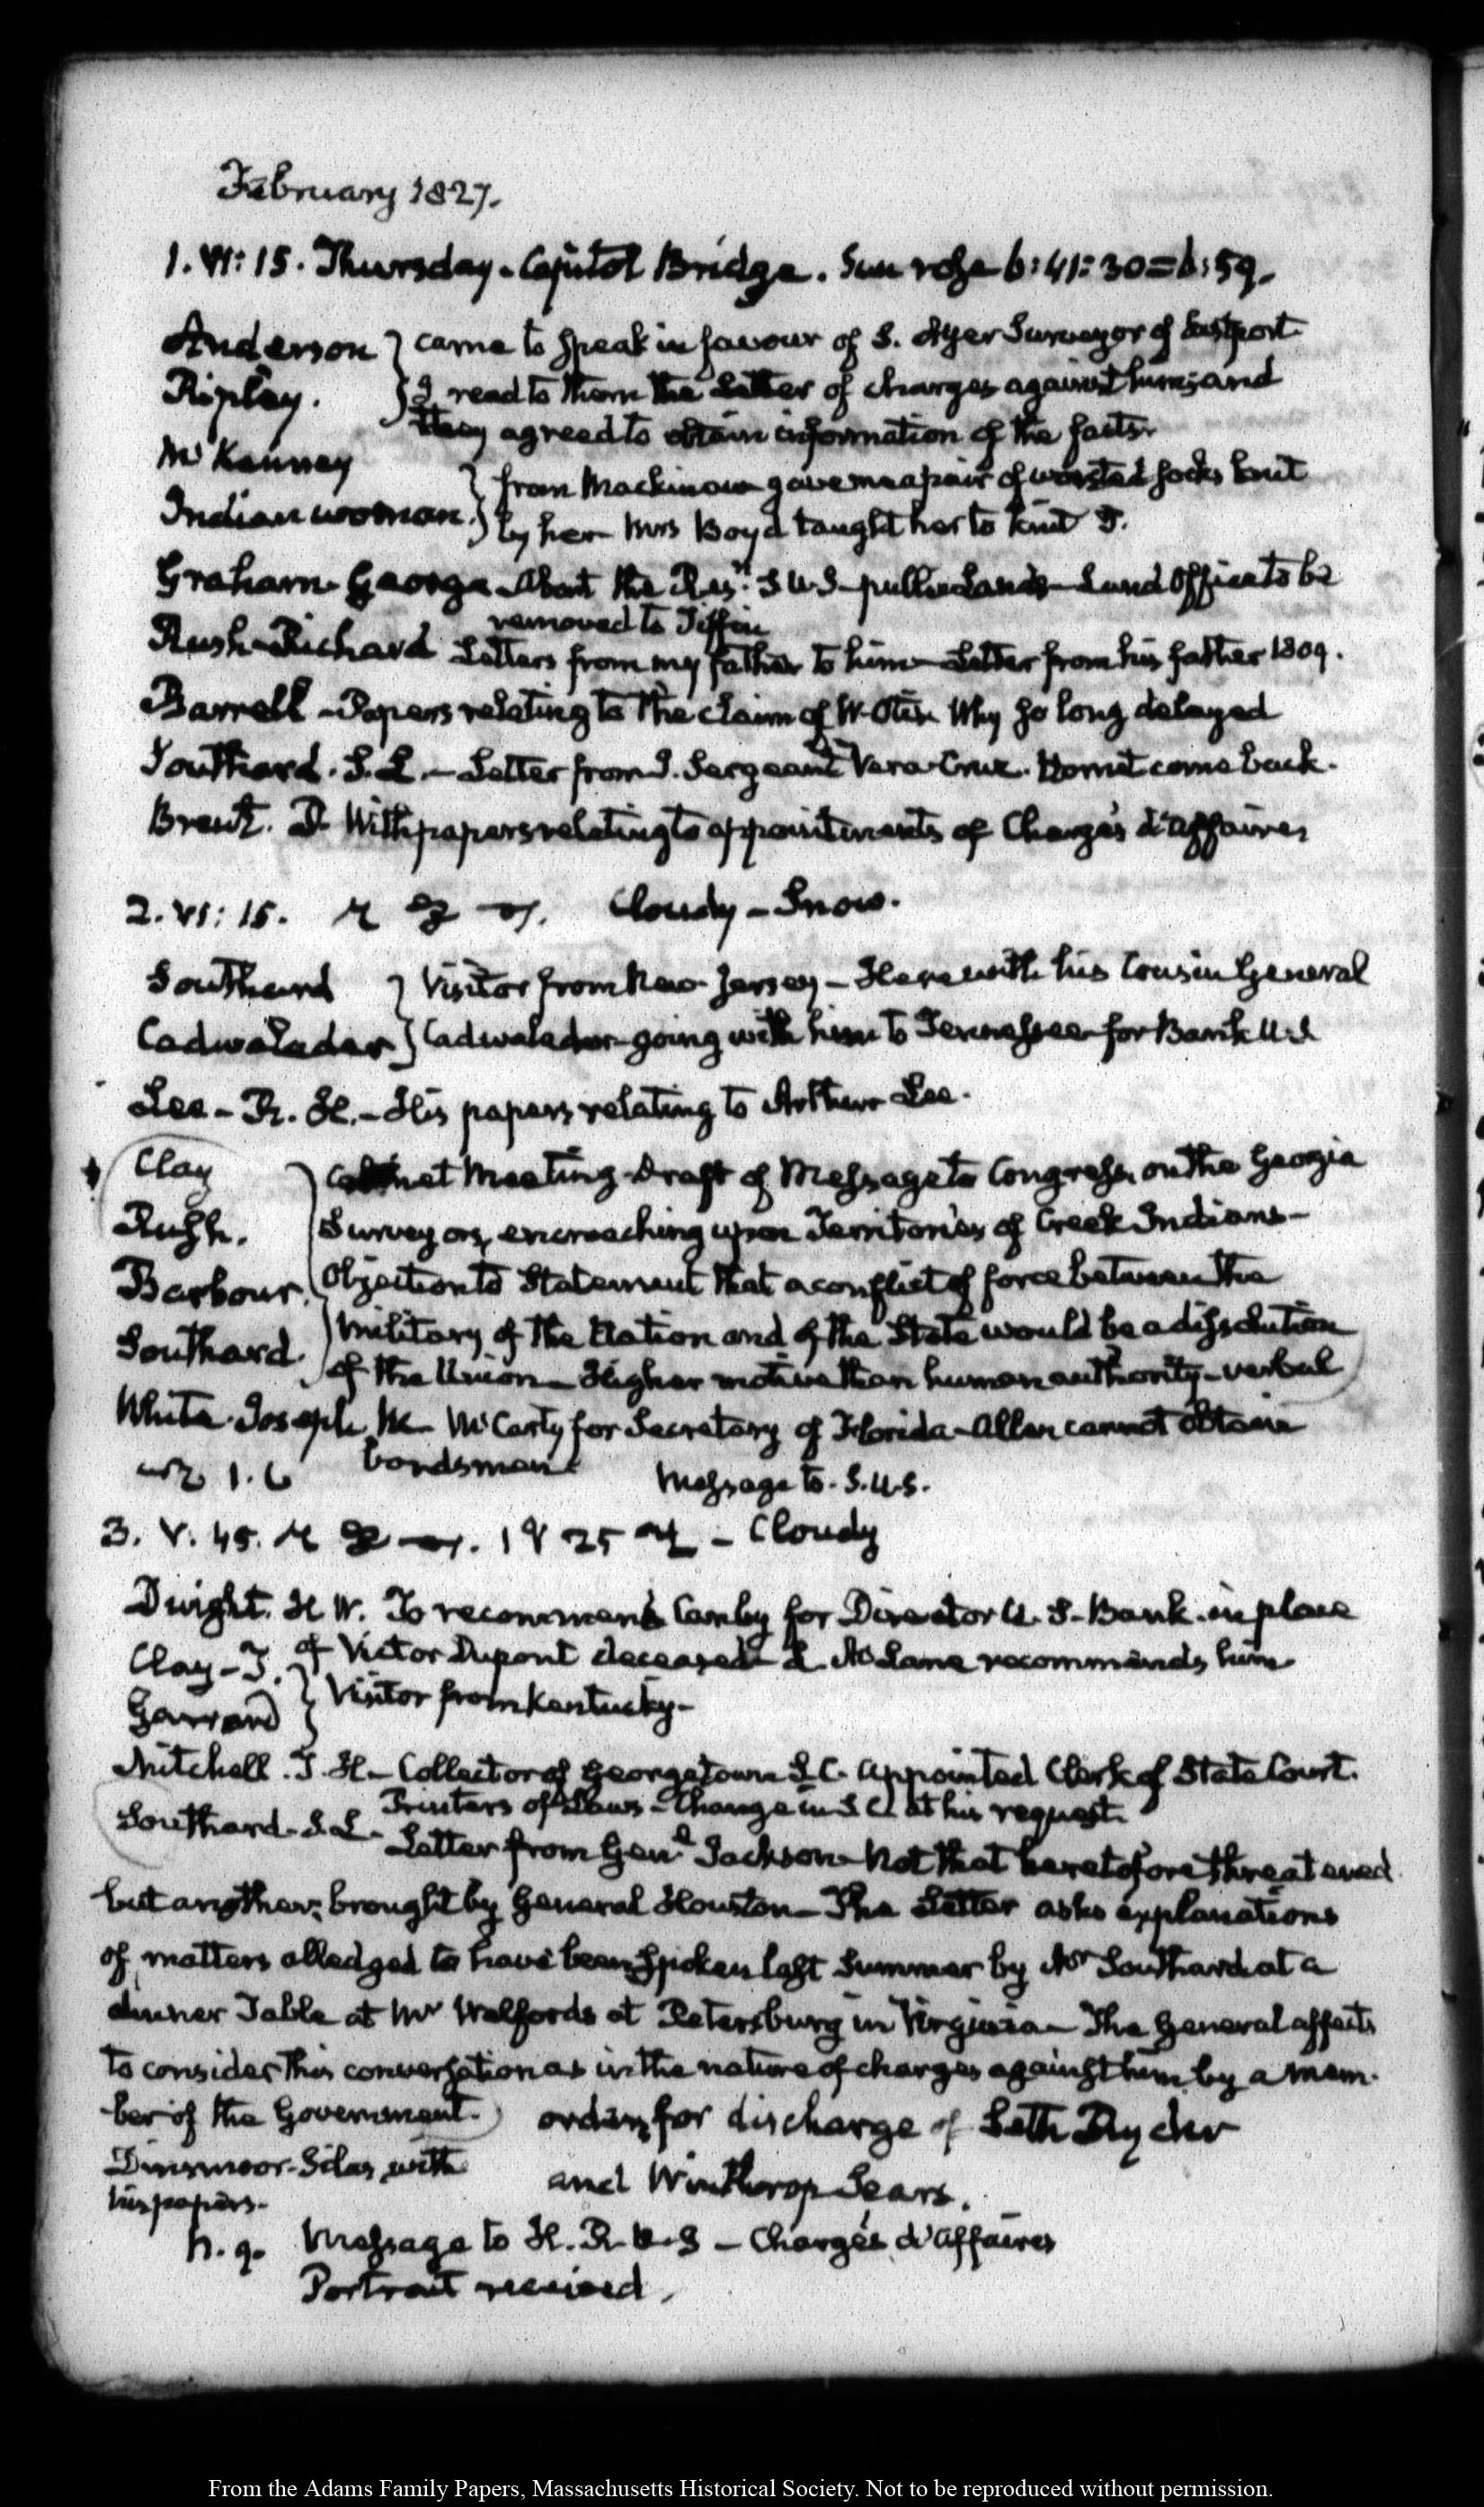 February 1827.
1. VI: 15. Thursday. Capitol Bridge. Sun rose 6:41:30=6:59.
Anderson } came to speak in favour of S. Ayer Surveyor of Eastport
Ripley. } I read to them the Letter of charges against him; and
they agreed to obtain information of the facts.
McKenney
Indian woman. } from Mackinaw gave me a pair of worsted socks knit
by her Mrs Boyd taught her to knit
Graham. George. About the Res.n S.U.S. public Lands Land Office to be
removed to Tiffin
Rush Richard Letters from my father to him Letter from his father 1809.
Barrell Papers relating to the claim of W. Otis. Why so long delayed
Southard. S. L. Letter from J. Sergeant Vera Cruz. Hornet come back.
Brent. D. With papers relating to appointments of Chargés d'affaires
2. VI: 15. Cloudy - Snow.
Southard } Visitor from New Jersey - Here with his Cousin General
Cadwalader } Cadwalader going with him to Tennessee for Bank U.S
Lee - R. H. - His papers relating to Arthur Lee.
Clay } Cabinet Meeting. Draft of Message to Congress, on the Georgia
Rush. Surveyors, encroaching upon Territories of Creek Indians -
Barbour. Objection to Statement that a conflict of force between the
Southard. military of the Nation and of the State would be a dissolution
of the Union - Higher motive than human authority - verbal
White. Joseph M. McCarty for Secretary of Florida - Allen cannot obtain
bondsmen Message to. S.U.S.
3. V. 45. - Cloudy
Dwight. H W. To recommend Canby for Director U. S. Bank. in place
of Victor Dupont deceased L. McLane recommends him
Clay - J.
Garrard } Visitor from Kentucky -
Mitchell. T. H. - Collector of Georgetown S.C. appointed Clerk of State Court.
Printers of Laws - Change in S.C. at his request.
Southard. S. L. Letter from Genl Jackson - Not that heretofore threatened
but another; brought by General Houston - The Letter asks explanations
of matters alledged to have been spoken last Summer by Mr Southard at a
dinner Table at Mr Welfords at Petersburg in Virginia - The General affects
to consider this conversation as in the nature of charges against him by a mem-
ber of the Government. order for discharge of Seth
and Winthrop Sears.
Dinsmoor - Silas with
his papers.
h. 9. Message to H. R. U.S - Chargés d'affaires
Portrait received.
From the Adams Family Papers, Massachusetts Historical Society. Not to be reproduced without permission.